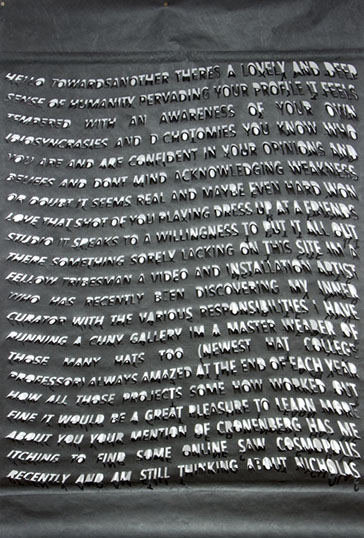 HELLO TOWARDSANOTHER THERES A LOVELY AND DEEP
SENSE OF HUMANITY PERVADING YOUR PROFILE IT FEELS
TEMPERED WITH AN AWARENESS OF YOUR OWN
IDIOSYNCRASIES AND DICHOTOMIES YOU KNOW WHO
YOU ARE AND ARE CONFIDENT IN YOUR OPINIONS AND
BELIEFS AND DONT MIND ACKNOWLEDGING WEAKNESS
OR DOUBT IT SEEMS REAL AND MAYBE EVEN HARD WON
LOVE THAT SHOT OF YOU PLAYING DRESS UP AT A FRIENDS
STUDIO IT SPEAKS TO A WILLINGNESS TO PUT IT ALL OUT
THERE SOMETHING SORELY LACKING ON THIS SITE
FELLOW TRIBESMAN A VIDEO AND INSTALLATION ARTIST
WHO HAS RECENTLY BEEN DISCOVERING MY INNER
CURATOR WITH THE VARIOUS RESPONSIBILITIES I HAVE
RUNNING A CHNY GALLERY IM A MASTER WEARER OF
THOSE MANY HATS TOO (NEWEST HAT COLLEGE
PROFESSOR) ALWAYS AMAZED AT THE END OF EACH YEAR
HOW ALL THOSE PROJECTS SOME HOW WORKED OUT
FINE IT WOULD BE A GREAT PLEASURE TO LEARN MORE
ABOUT YOU YOUR MENTION OF CRONENBERG HAS ME
ITCHING TO FIND SOME ONLINE SAW COSMOPOLIS
RECENTLY AND AM STILL THINKING ABOUT NICHOLAS